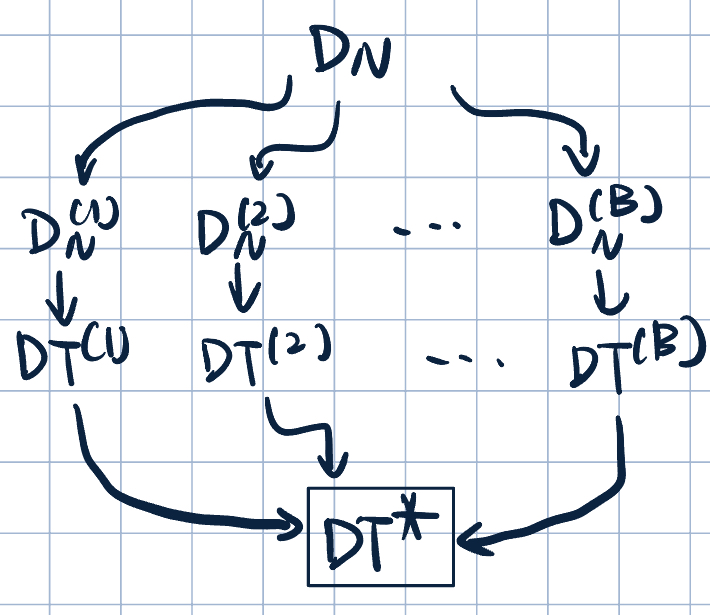 D_N
D_N^(1) D_N^(2) ... D_N^(B)
DT^(1) DT^(2) ... DT^(B)
DT*